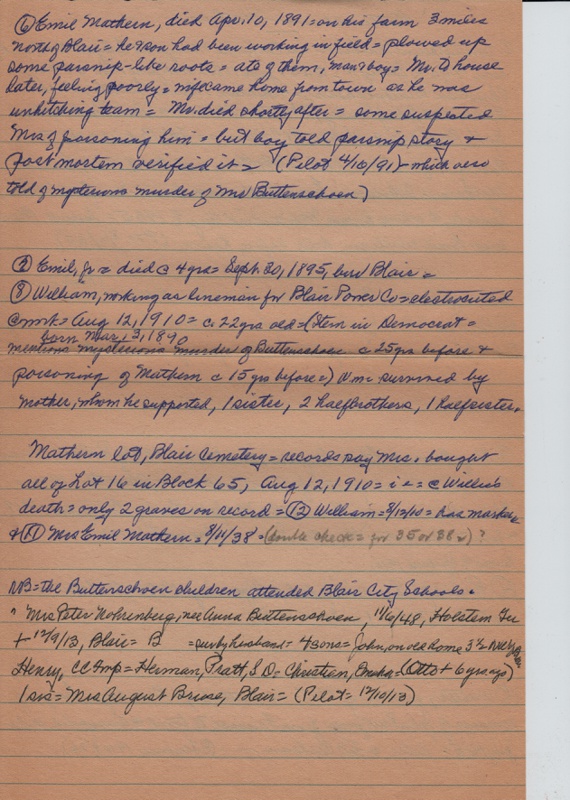 ① Emil Mathern, died Apr. 10, 1891 = on his farm 3 miles
north of Blair = he & son had been working in field = plowed up
some parsnip-like roots = ate of them, man & boy = Mr. to house
later, feeling poorly = came home from town as he was
unhitching team = Mr. died shortly after = some suspected
Mrs of poisoning him = but boy told parsnip story &
post mortem verified it = (Pilot 4/18/91) = which also
told of mysterious murder of Mr Buttenschoen)
② Emil, Jr = died @ 4 yrs = Sept. 20, 1895, bur Blair =
③ William, working as lineman for Blair Power Co = electrocuted
@ work = Aug 12, 1910 = c. 22 yrs old = (Item in Democrat =
born Mar. 13, 1890
mentions mysterious murder of Buttenschoen c 25 yrs before &
poisoning of Mathern c 15 yrs before =) Wm. survived by
mother, whom he supported, 1 sister, 2 half brothers, 1 half sister.
Mathern lot, Blair Cemetery = records say Mrs. bought
all of Lot 16 in Block 65, Aug 12, 1910 = i e = @ Willie's
death = only 2 graves on record = ⑫ William = 8/12/10 = has marker
& ⑪ Mrs Emil Mathern = 8/11/38 = (double check = for 35 or 38 =) ?
NB = the Buttenschoen children attended Blair City Schools =
" Mrs Peter Wohrenberg, nee Anna Buttenschoen, 11/6/48, Holstein Ger
+ 12/9/13, Blair = B = sur by husband = 4 sons = John, on old home 3½
Henry, = Herman, Pratt, S D = Christian, Omaha = (Otto + 6 yrs ago)
1 sis = Mrs August Bruse, Blair = (Pilot = 12/10/13)